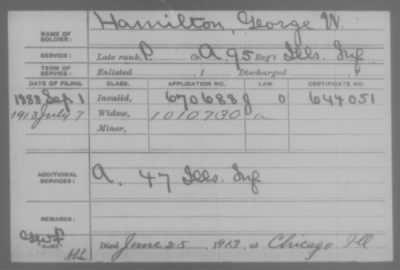 NAME OF SOLDIER: Hamilton, George W.
SERVICE: Late rank, P. Co. A, 95 Reg't Ills. Inf
TERM OF SERVICE: Enlisted , 1 Discharged , 1
DATE OF FILING. CLASS. APPLICATION NO. LAW. CERTIFICATE NO.
1888 Sep. 1 Invalid, 670688 J 0 644051
1913 July 7 Widow, 1010730
Minor,
ADDITIONAL SERVICES: A. 47 Ills. Inf
REMARKS:
Died June 25, 1913, at Chicago Ill